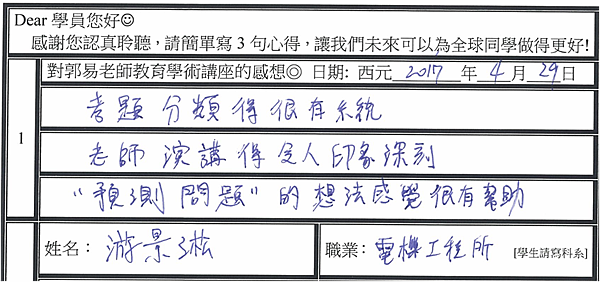 Dear 學員您好☺
感謝您認真聆聽，請簡單寫 3 句心得，讓我們未來可以為全球同學做得更好!
對郭易老師教育學術講座的感想◎ 日期: 西元 2017 年 4 月 29 日
1
考題 分類 得 很有系統
老師 演講 得 令人 印象深刻
"預測 問題" 的 想法感覺很有幫助
姓名： 游景淞 職業： 電機工程所 [學生請寫科系]